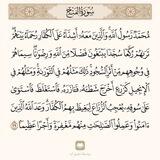 سُورَةُ الفَتْحِ
مُّحَمَّدٌ رَّسُولُ اللَّهِ وَالَّذِينَ مَعَهُ أَشِدَّاءُ عَلَى الْكُفَّارِ رُحَمَاءُ بَيْنَهُمْ
تَرَاهُمْ رُكَّعًا سُجَّدًا يَبْتَغُونَ فَضْلًا مِّنَ اللَّهِ وَرِضْوَانًا سِيمَاهُمْ
فِي وُجُوهِهِم مِّنْ أَثَرِ السُّجُودِ ذَٰلِكَ مَثَلُهُمْ فِي التَّوْرَاةِ وَمَثَلُهُمْ فِي
الْإِنجِيلِ كَزَرْعٍ أَخْرَجَ شَطْأَهُ فَآزَرَهُ فَاسْتَغْلَظَ فَاسْتَوَىٰ
عَلَىٰ سُوقِهِ يُعْجِبُ الزُّرَّاعَ لِيَغِيظَ بِهِمُ الْكُفَّارَ وَعَدَ اللَّهُ الَّذِينَ
آمَنُوا وَعَمِلُوا الصَّالِحَاتِ مِنْهُم مَّغْفِرَةً وَأَجْرًا عَظِيمًا ٢٩